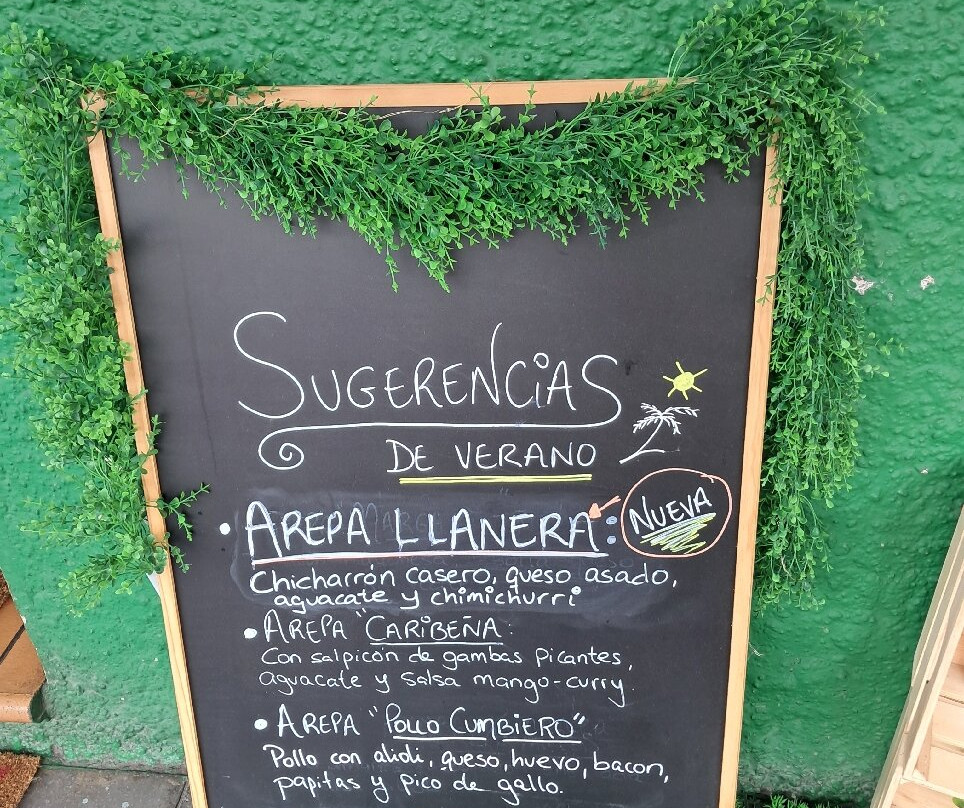 SUGERENCiAS
DE VERANO
• AREPA LLANERA: NUEVA
Chicharrón casero, queso asado,
aguacate y chimichurri
• AREPA "CARiBEÑA:
Con salpicón de gambas picantes,
aguacate y salsa mango-curry.
• AREPA "POLLO CUMBiERO"
Pollo con alioli, queso, huevo, bacon,
papitas y pico de gallo.